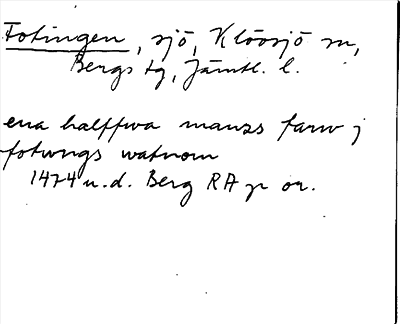 Fotingen, sjö, Klövsjö sn,
Bergs tg, Jämtl. l.
ena halffwa manzs farw j
fotungs watnom
1474 u.d. Berg RA p or.